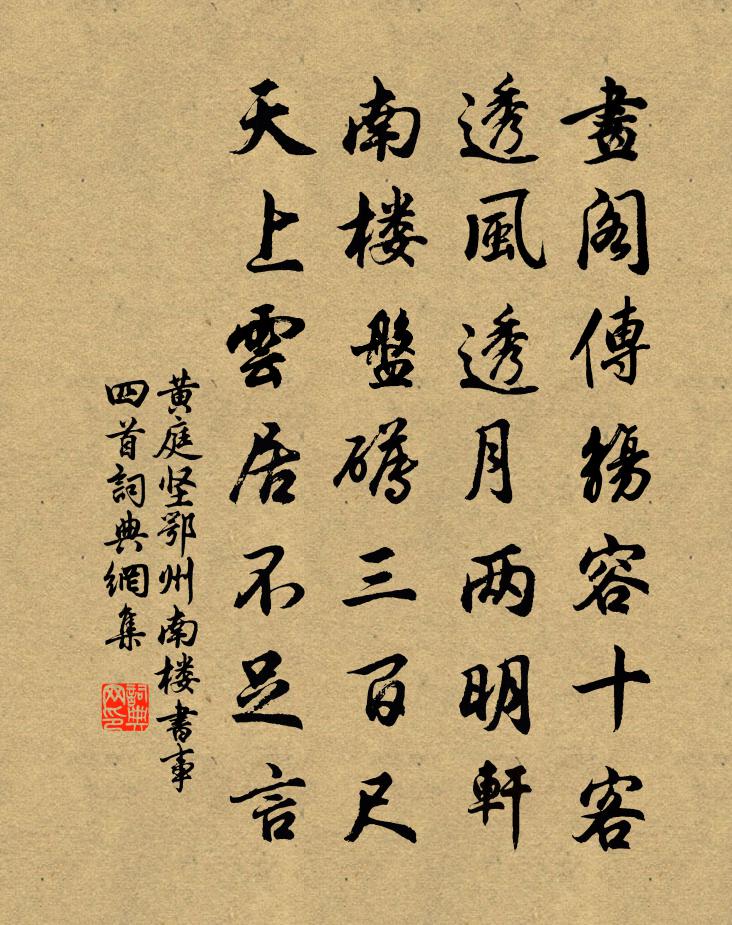 畫阁傳觴容十客
透風透月两明軒
南楼盤礴三百尺
天上雲居不足言
黄庭坚鄂州南楼書事
四首詞典網集
詞典
网印